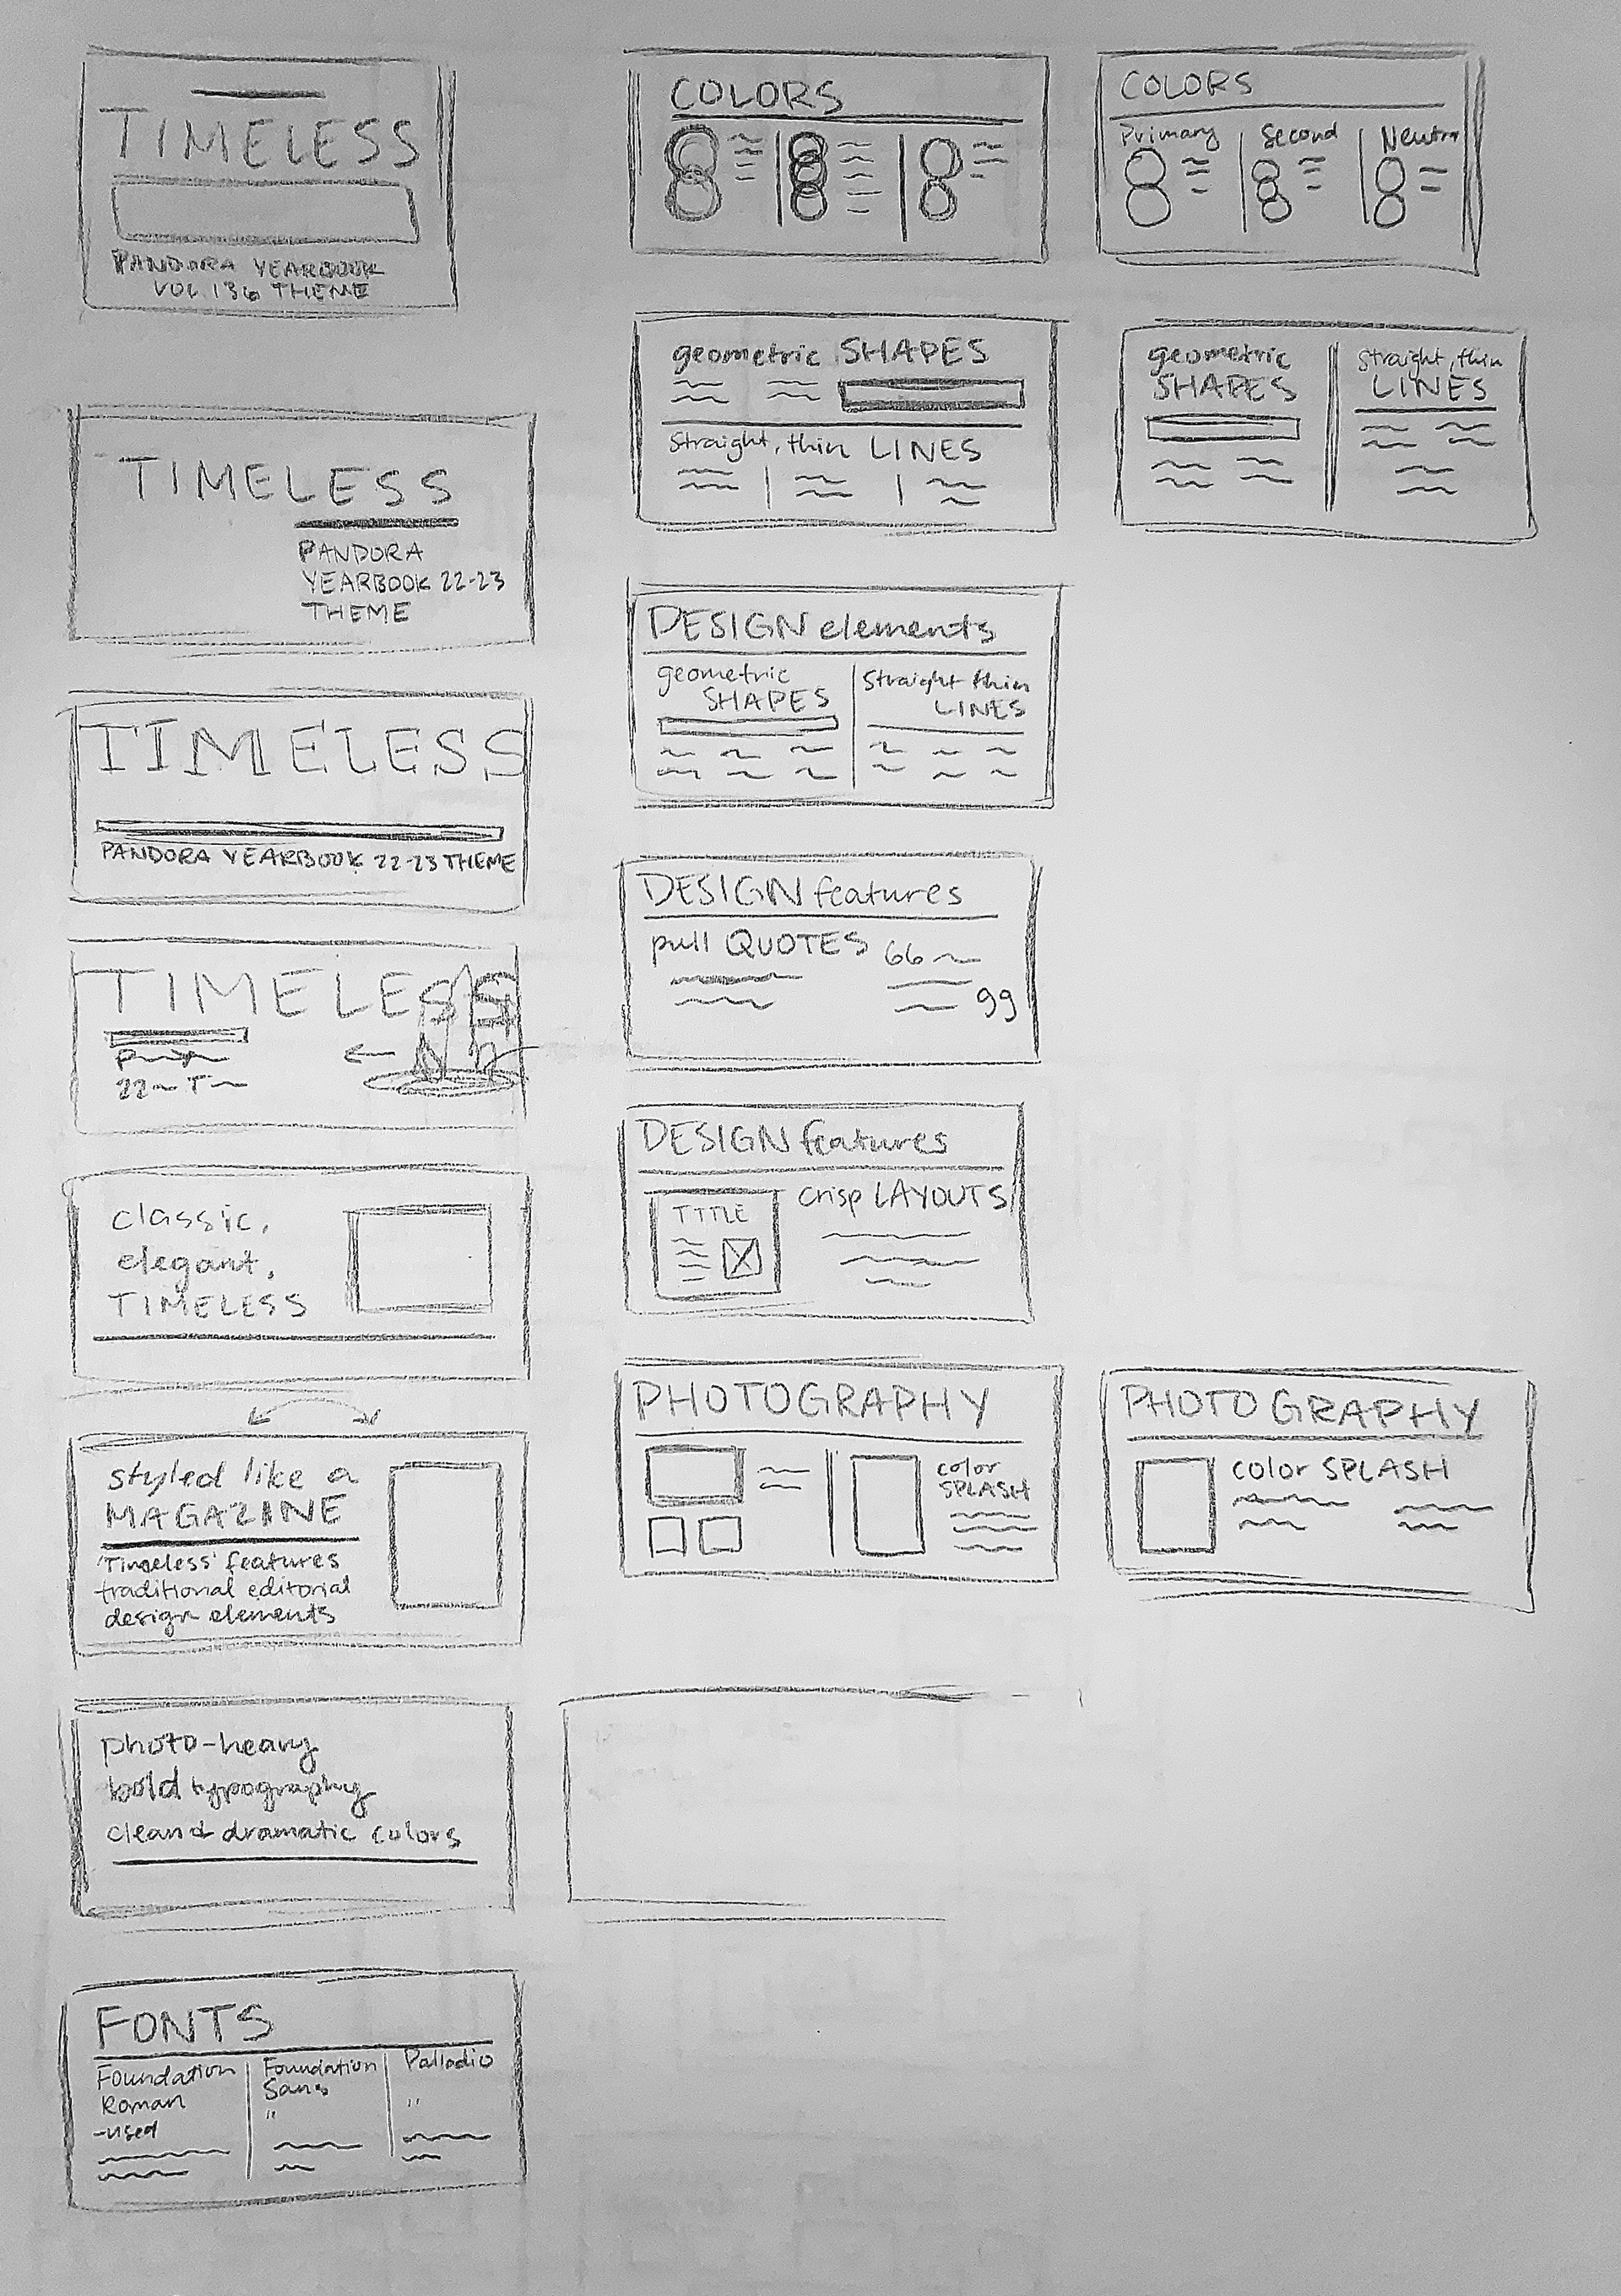 TIMELESS
PANDORA YEARBOOK
VOL 136 THEME
TIMELESS
PANDORA
YEARBOOK 22-23
THEME
TIMELESS
PANDORA YEARBOOK 22-23 THEME
TIMELESS
22 T
classic,
elegant,
TIMELESS
styled like a
MAGAZINE
'Timeless' features
traditional editorial
design elements
photo-heavy
bold typography
clean & dramatic colors
FONTS
Foundation
Roman
-used
Foundation
Sans
"
Palladio
"
COLORS
geometric SHAPES
Straight, thin LINES
DESIGN elements
geometric
SHAPES
Straight thin
LINES
DESIGN features
pull QUOTES
66
99
DESIGN features
TITLE
crisp LAYOUTS
PHOTOGRAPHY
color
SPLASH
COLORS
Primary
Second
Neutra
geometric
SHAPES
Straight, thin
LINES
PHOTOGRAPHY
color SPLASH